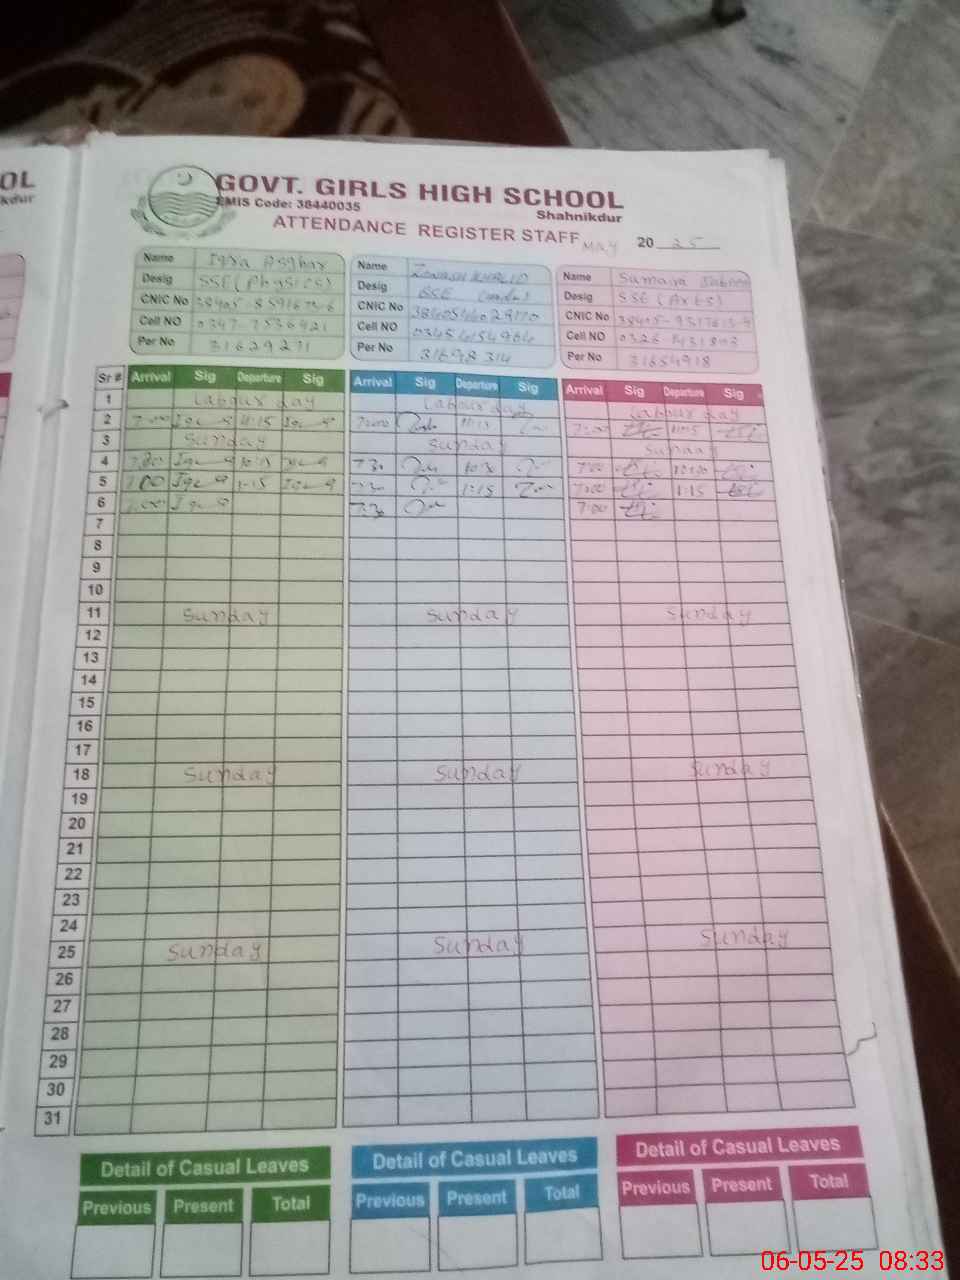 OL
kdur
GOVT. GIRLS HIGH SCHOOL
EMIS Code: 38440035
Shahnikdur
ATTENDANCE REGISTER STAFF May 2025
Name Iqra Asghar
Desig SSE (Physics)
CNIC No
Cell NO 0347-7536421
Per No 31629271
Name
Desig SSE
CNIC No
Cell NO
Per No 31698314
Name Sumaira
Desig SSE (Arts)
CNIC No
Cell NO
Per No 31654918
Sr # Arrival Sig Departure Sig Arrival Sig Departure Sig Arrival Sig Departure Sig
1 Labour day Labour day Labour day
2 7:00 11:15 11:15 7:00 11:15
3 Sunday Sunday Sunday
4 7:00 7:30 10:30 7:00 10:00
5 7:00 1:15 7:30 1:15 7:00 1:15
6 7:00 7:30 7:00
7
8
9
10
11 Sunday Sunday Sunday
12
13
14
15
16
17
18 Sunday Sunday Sunday
19
20
21
22
23
24
25 Sunday Sunday Sunday
26
27
28
29
30
31
Detail of Casual Leaves Detail of Casual Leaves Detail of Casual Leaves
Previous Present Total Previous Present Total Previous Present Total
06-05-25 08:33